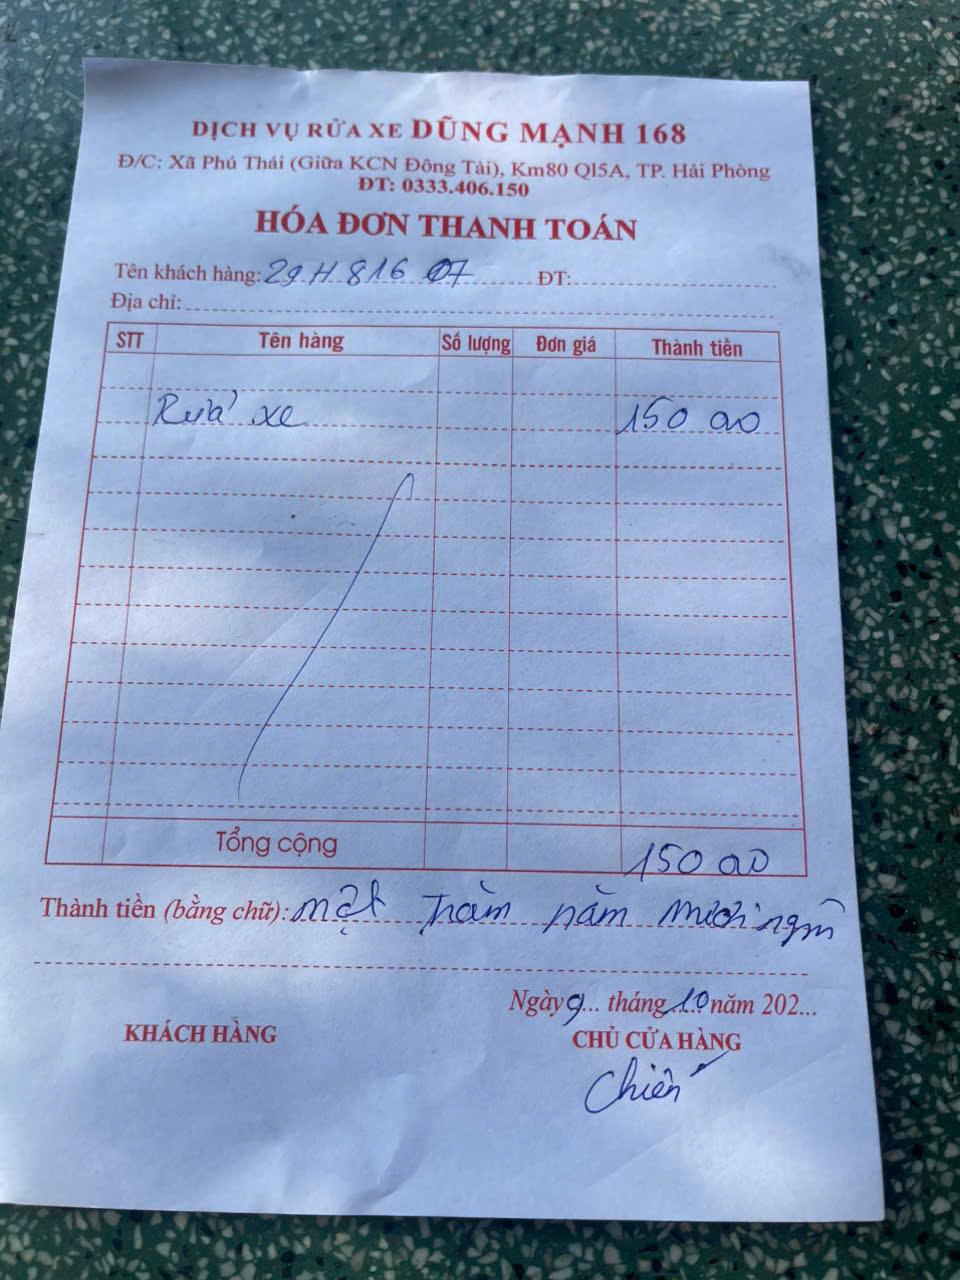 DỊCH VỤ RỬA XE DŨNG MẠNH 168
Đ/C: Xã Phú Thái (Giữa KCN Đông Tài), Km80 Ql5A, TP. Hải Phòng
ĐT: 0333.406.150
HÓA ĐƠN THANH TOÁN
Tên khách hàng: 29H 816 07 ĐT:
Địa chỉ:
STT Tên hàng Số lượng Đơn giá Thành tiền
Rửa xe 150 000
Tổng cộng 150 000
Thành tiền (bằng chữ): một trăm năm mươi
Ngày 9... tháng 10 năm 202...
KHÁCH HÀNG CHỦ CỬA HÀNG
Chiến